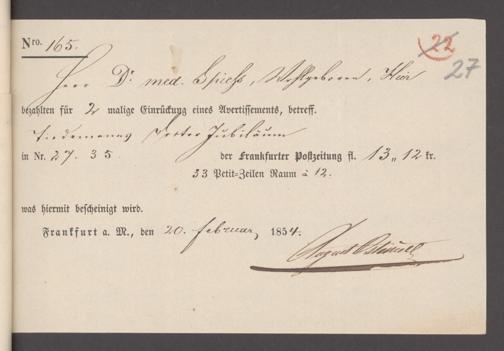 Nro. 165.
22
27
Herr Dr. med. Spiess, Wohlgeboren, Hier
bezahlten für 2 malige Einrückung eines Avertissements, betreff.
Tiedemanns Doctor Jubiläum
in Nr. 27. 35 der Frankfurter Postzeitung fl. 13 „ 12 kr.
33 Petit-Zeilen Raum à 12.
was hiermit bescheinigt wird.
Frankfurt a. M., den 20. Februar 1854.
August